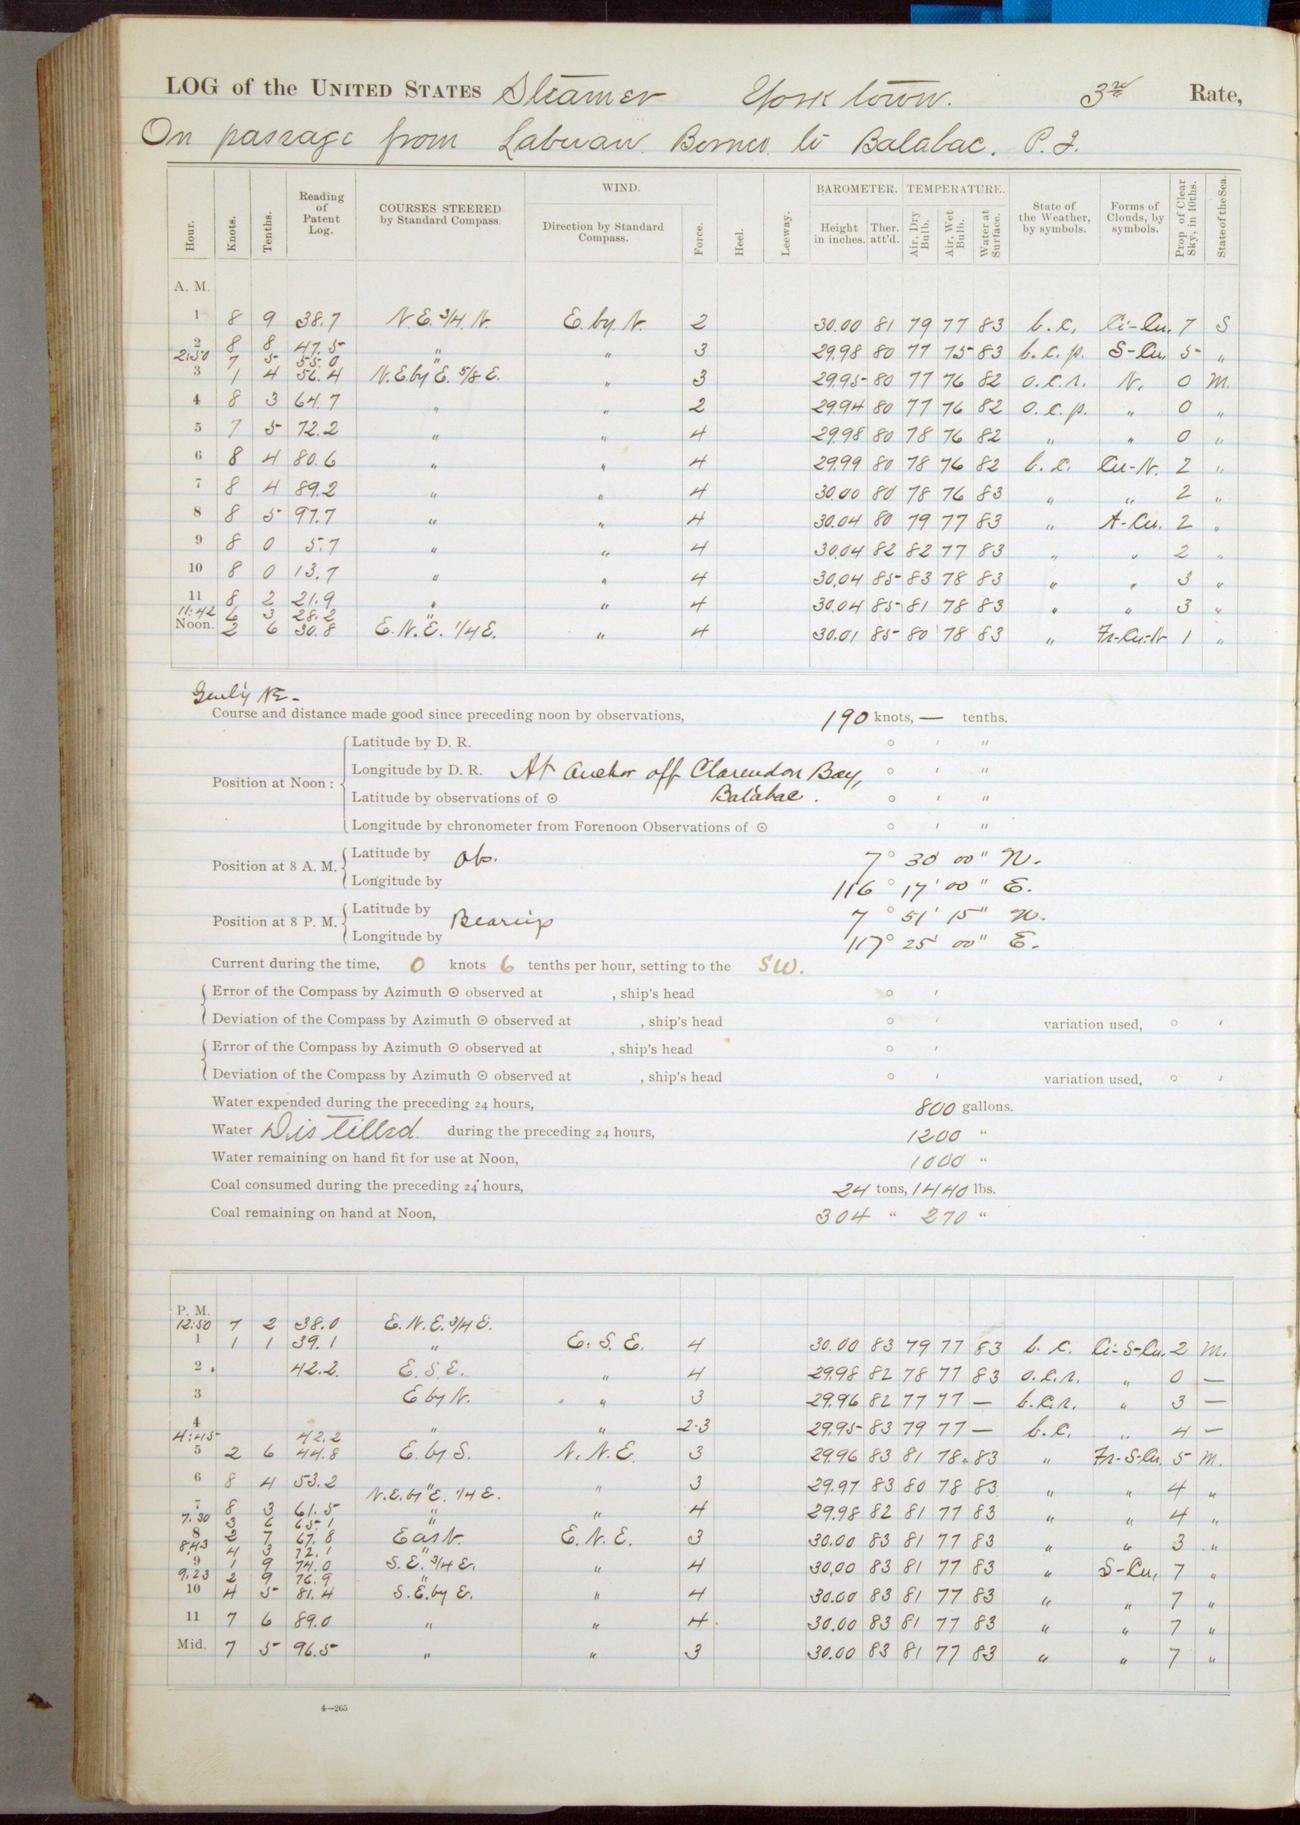 LOG of the UNITED STATES Steamer Yorktown. 3rd Rate,
On passage from Labuan Borneo to Balabac. P.I.
Hour. Knots. Tenths. Reading of Patent Log. COURSES STEERED by Standard Compass. WIND. Direction by Standard Compass. Force. Heel. Leeway. BAROMETER. Height in inches. Ther. att'd. TEMPERATURE. Air, Dry Bulb. Air, Wet Bulb. Water at Surface. State of the Weather, by symbols. Forms of Clouds, by symbols. Prop. of Clear Sky, in 10ths. State of the Sea.
A. M.
1 8 9 38.7 N.E. 3/4 N. E. by N. 2 30.00 81 79 77 83 b.c. Ci-Cu. 7 S
2 8 8 47.5 " " 3 29.98 80 77 75 83 b.c.p. S-Cu. 5 "
2:50 7 5 55.0
3 1 4 56.4 N.E. by E. 5/8 E. " 3 29.95 80 77 76 82 o.c.r. N. 0 M.
4 8 3 64.7 " " 2 29.94 80 77 76 82 o.c.p. " 0 "
5 7 5 72.2 " " 4 29.98 80 78 76 82 " " 0 "
6 8 4 80.6 " " 4 29.99 80 78 76 82 b.c. Cu-N. 2 "
7 8 4 89.2 " " 4 30.00 80 78 76 83 " " 2 "
8 8 5 97.7 " " 4 30.04 80 79 77 83 " A-Cu. 2 "
9 8 0 5.7 " " 4 30.04 82 82 77 83 " " 2 "
10 8 0 13.7 " " 4 30.04 85 83 78 83 " " 3 "
11 8 2 21.9 " " 4 30.04 85 81 78 83 " " 3 "
11:42 6 3 28.2 "
Noon. 2 6 30.8 E.N.E. 1/4 E. " 4 30.01 85 80 78 83 " Fr-Cu-N 1 "
NE-
Course and distance made good since preceding noon by observations, 190 knots, — tenths.
Position at Noon: Latitude by D. R. ° ' "
Longitude by D. R. At anchor off Clarendon Bay, ° ' "
Latitude by observations of ☉ Balabac. ° ' "
Longitude by chronometer from Forenoon Observations of ☉ ° ' "
Position at 8 A. M. Latitude by Obs. 7° 30' 00" N.
Longitude by 116° 17' 00" E.
Position at 8 P. M. Latitude by Bearings 7° 51' 15" N.
Longitude by 117° 25' 00" E.
Current during the time, 0 knots 6 tenths per hour, setting to the SW.
Error of the Compass by Azimuth ☉ observed at , ship's head ° '
Deviation of the Compass by Azimuth ☉ observed at , ship's head ° ' variation used, ° '
Error of the Compass by Azimuth ☉ observed at , ship's head ° '
Deviation of the Compass by Azimuth ☉ observed at , ship's head ° ' variation used, ° '
Water expended during the preceding 24 hours, 800 gallons.
Water Distilled. during the preceding 24 hours, 1200 "
Water remaining on hand fit for use at Noon, 1000 "
Coal consumed during the preceding 24 hours, 24 tons, 1440 lbs.
Coal remaining on hand at Noon, 304 " 270 "
P. M.
12:50 7 2 38.0 E.N.E. 3/4 E.
1 1 1 39.1 " E.S.E. 4 30.00 83 79 77 83 b.c. Ci-S-Cu. 2 M.
2. 42.2. E.S.E. " 4 29.98 82 78 77 83 o.c.r. " 0 —
3 E by N. " 3 29.96 82 77 77 — b.c.r. " 3 —
4 " " 2-3 29.95 83 79 77 — b.c. " 4 —
4:45 42.2
5 2 6 44.8 E. by S. N.N.E. 3 29.96 83 81 78 83 " Fr-S-Cu. 5 M.
6 8 4 53.2 " " 3 29.97 83 80 78 83 " " 4 "
N.E. by E. 1/4 E.
7 8 3 61.5 " " 4 29.98 82 81 77 83 " " 4 "
7.30 3 6 65.1 "
8 2 7 67.8 East. E.N.E. 3 30.00 83 81 77 83 " " 3 "
8:43 4 3 72.1 "
9 1 9 74.0 S.E. 3/4 E. " 4 30.00 83 81 77 83 " S-Cu. 7 "
9.23 2 9 76.9 "
10 4 5 81.4 S.E. by E. " 4 30.00 83 81 77 83 " " 7 "
11 7 6 89.0 " " 4 30.00 83 81 77 83 " " 7 "
Mid. 7 5 96.5 " " 3 30.00 83 81 77 83 " " 7 "
4—265